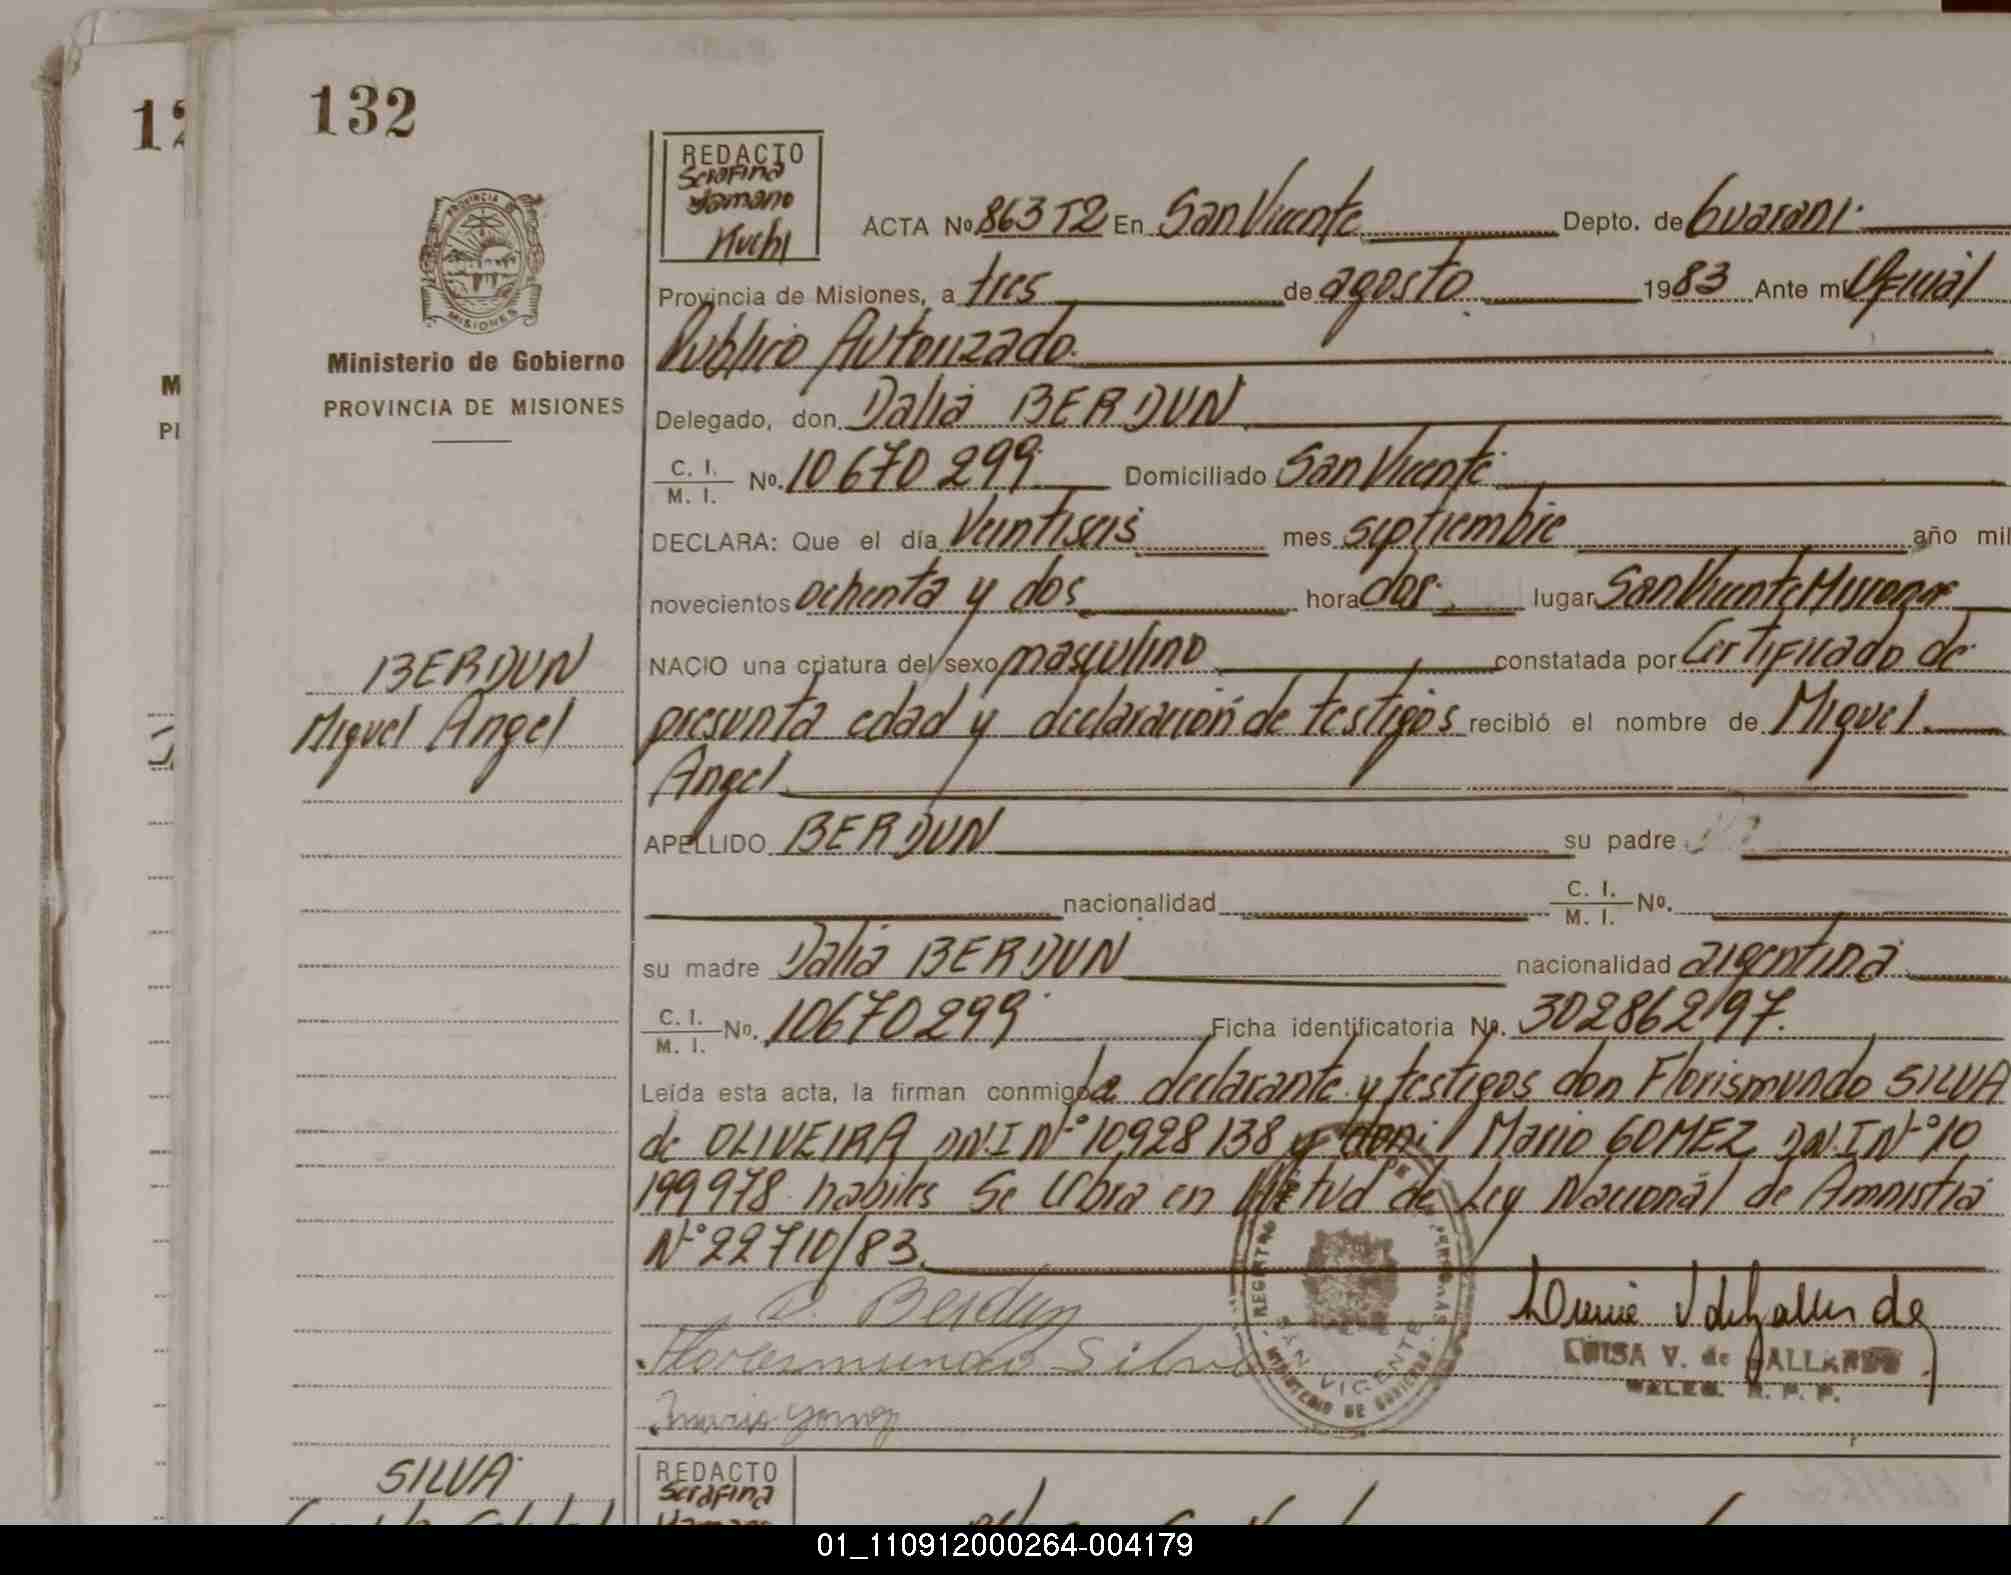 132
12
REDACTO
Serafina
Yamano
Kuchi
ACTA No. 863 T2 En San Vicente Depto. de Guarani.
Provincia de Misiones, a tres de agosto 1983 Ante mí Oficial
Publico Autorizado.
Delegado, don Dalia BERDUN
C. I. / M. I. No. 10670299 Domiciliado San Vicente
DECLARA: Que el día Veintiseis mes septiembre año mil
novecientos ochenta y dos hora dos. lugar San Vicente Misiones
NACIO una criatura del sexo masculino constatada por Certificado de
presunta edad y declaración de testigos recibió el nombre de Miguel
Angel
APELLIDO BERDUN su padre
nacionalidad C. I. / M. I. No.
su madre Dalia BERDUN nacionalidad argentina
C. I. / M. I. No. 10670299 Ficha identificatoria No. 302862197.
Leída esta acta, la firman conmigo la declarante y testigos don Florismundo SILVA
de OLIVEIRA DN.I N° 10928138 y don Mario GOMEZ DN.I N° 10
199978 habiles Se libra en Virtud de Ley Nacional de Amnistia
N° 22710/83.
PROVINCIA DE
MISIONES
Ministerio de Gobierno
PROVINCIA DE MISIONES
M
PI
BERDUN
Miguel Angel
D. Berdun
Silva
REGISTRO
SAN VICENTE
MINISTERIO DE GOBIERNO
LUISA V. de GALLARDO
R. P. P.
SILVA
REDACTO
Serafina
Yamano
01_110912000264-004179